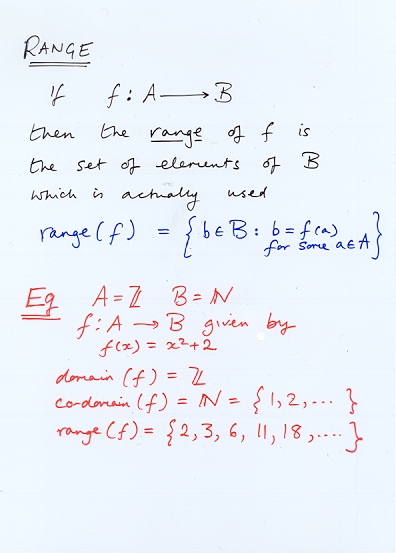 RANGE
If f : A ⟶ B
then the range of f is
the set of elements of B
which is actually used
range(f) = { b ∈ B : b = f(a)
for some a ∈ A }
Eg A = ℤ B = ℕ
f : A → B given by
f(x) = x² + 2
domain (f) = ℤ
co-domain (f) = ℕ = { 1, 2, ... }
range (f) = { 2, 3, 6, 11, 18, .... }